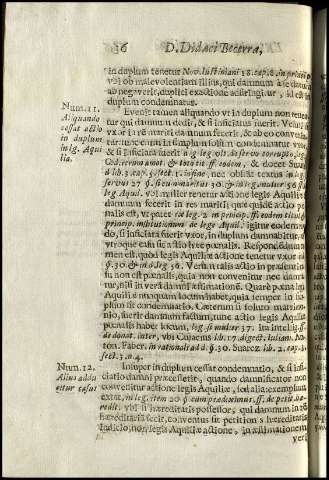 36 D. Didaci Becerra,
in duplum tenetur Nov. Iustiniani 18. cap. 8. in princip.
vel ob malevolentiam illius, qui damnum à se datum
abnegaverit, duplici exactione adstringitur, id est in
duplum condemnatus.
Num. 11.
Aliquando
cessat actio
in duplum
in leg. Aqui
lia.
Evenit tamen aliquando vt in duplum non tenea
tur qui damnum dedi, & si inficiatus fuerit. Veluti
vxor in re mariti damnum fecerit, & ab eo conve
niatur: nec in simplum solum condemnatur
& si inficiata fuerit
& docet Suarez
lib. 2. cap. 3. sect. 1. in fine, nec obstat textus in leg.
servus 27. §. si cum maritus 30. & in leg. mulier 56. ff. ad
leg. Aquil. vbi mulier tenetur actione legis Aquiliæ si
damnum fecerit in res mariti; quæ quidem actio pœ
nalis est, vt patet ex leg. 2. in princip. ff. eodem titul. &
princip. institutionum de leg. Aquil. igitur eodem mo
do, si inficiata fuerit vxor, in duplum damnabitur,
vtroque casu sit actio hæc pœnalis. Respondendum
est, quod legis Aquiliæ actione tenetur vxor ex
§. 30. & in d. leg. 56. Verùm talis actio in præsenti
tu non est pœnalis, quia non convenitur nec damna
tur, nisi in vera damni æstimatione. Quare pœna legis
Aquiliæ nunquam locum habet, quia semper in sim
plum fit condemnatio. Cæterum si soluto matrimo
nio, fuerit damnum factum, tunc actio legis Aquiliæ
pœnalis habet locum, leg. si mulier 37. ita intellig. ff.
de donat. inter, vbi Cujacius lib. 17. digest. Iuliani. An
ton. Faber. in rationali ad d. §. 30. Suarez lib. 2. cap. 3.
sect. 3. n. 4.
Num. 12.
Alius addu
citur casus
Insuper in duplum cessat condemnatio, & si infi
ciatio damni præcesserit, quando damnificator non
convenitur actione legis Aquiliæ, sed alia: exemplum
extat, in leg. item 20. §. cum prædiximus. ff. de petit. hæ
redit. vbi si hæreditatis possessor, qui damnum in re
hæreditaria fecit, conventus sit petitionis hæreditatis
iudicio, non legis Aquiliæ actione, in æstimationem
veri